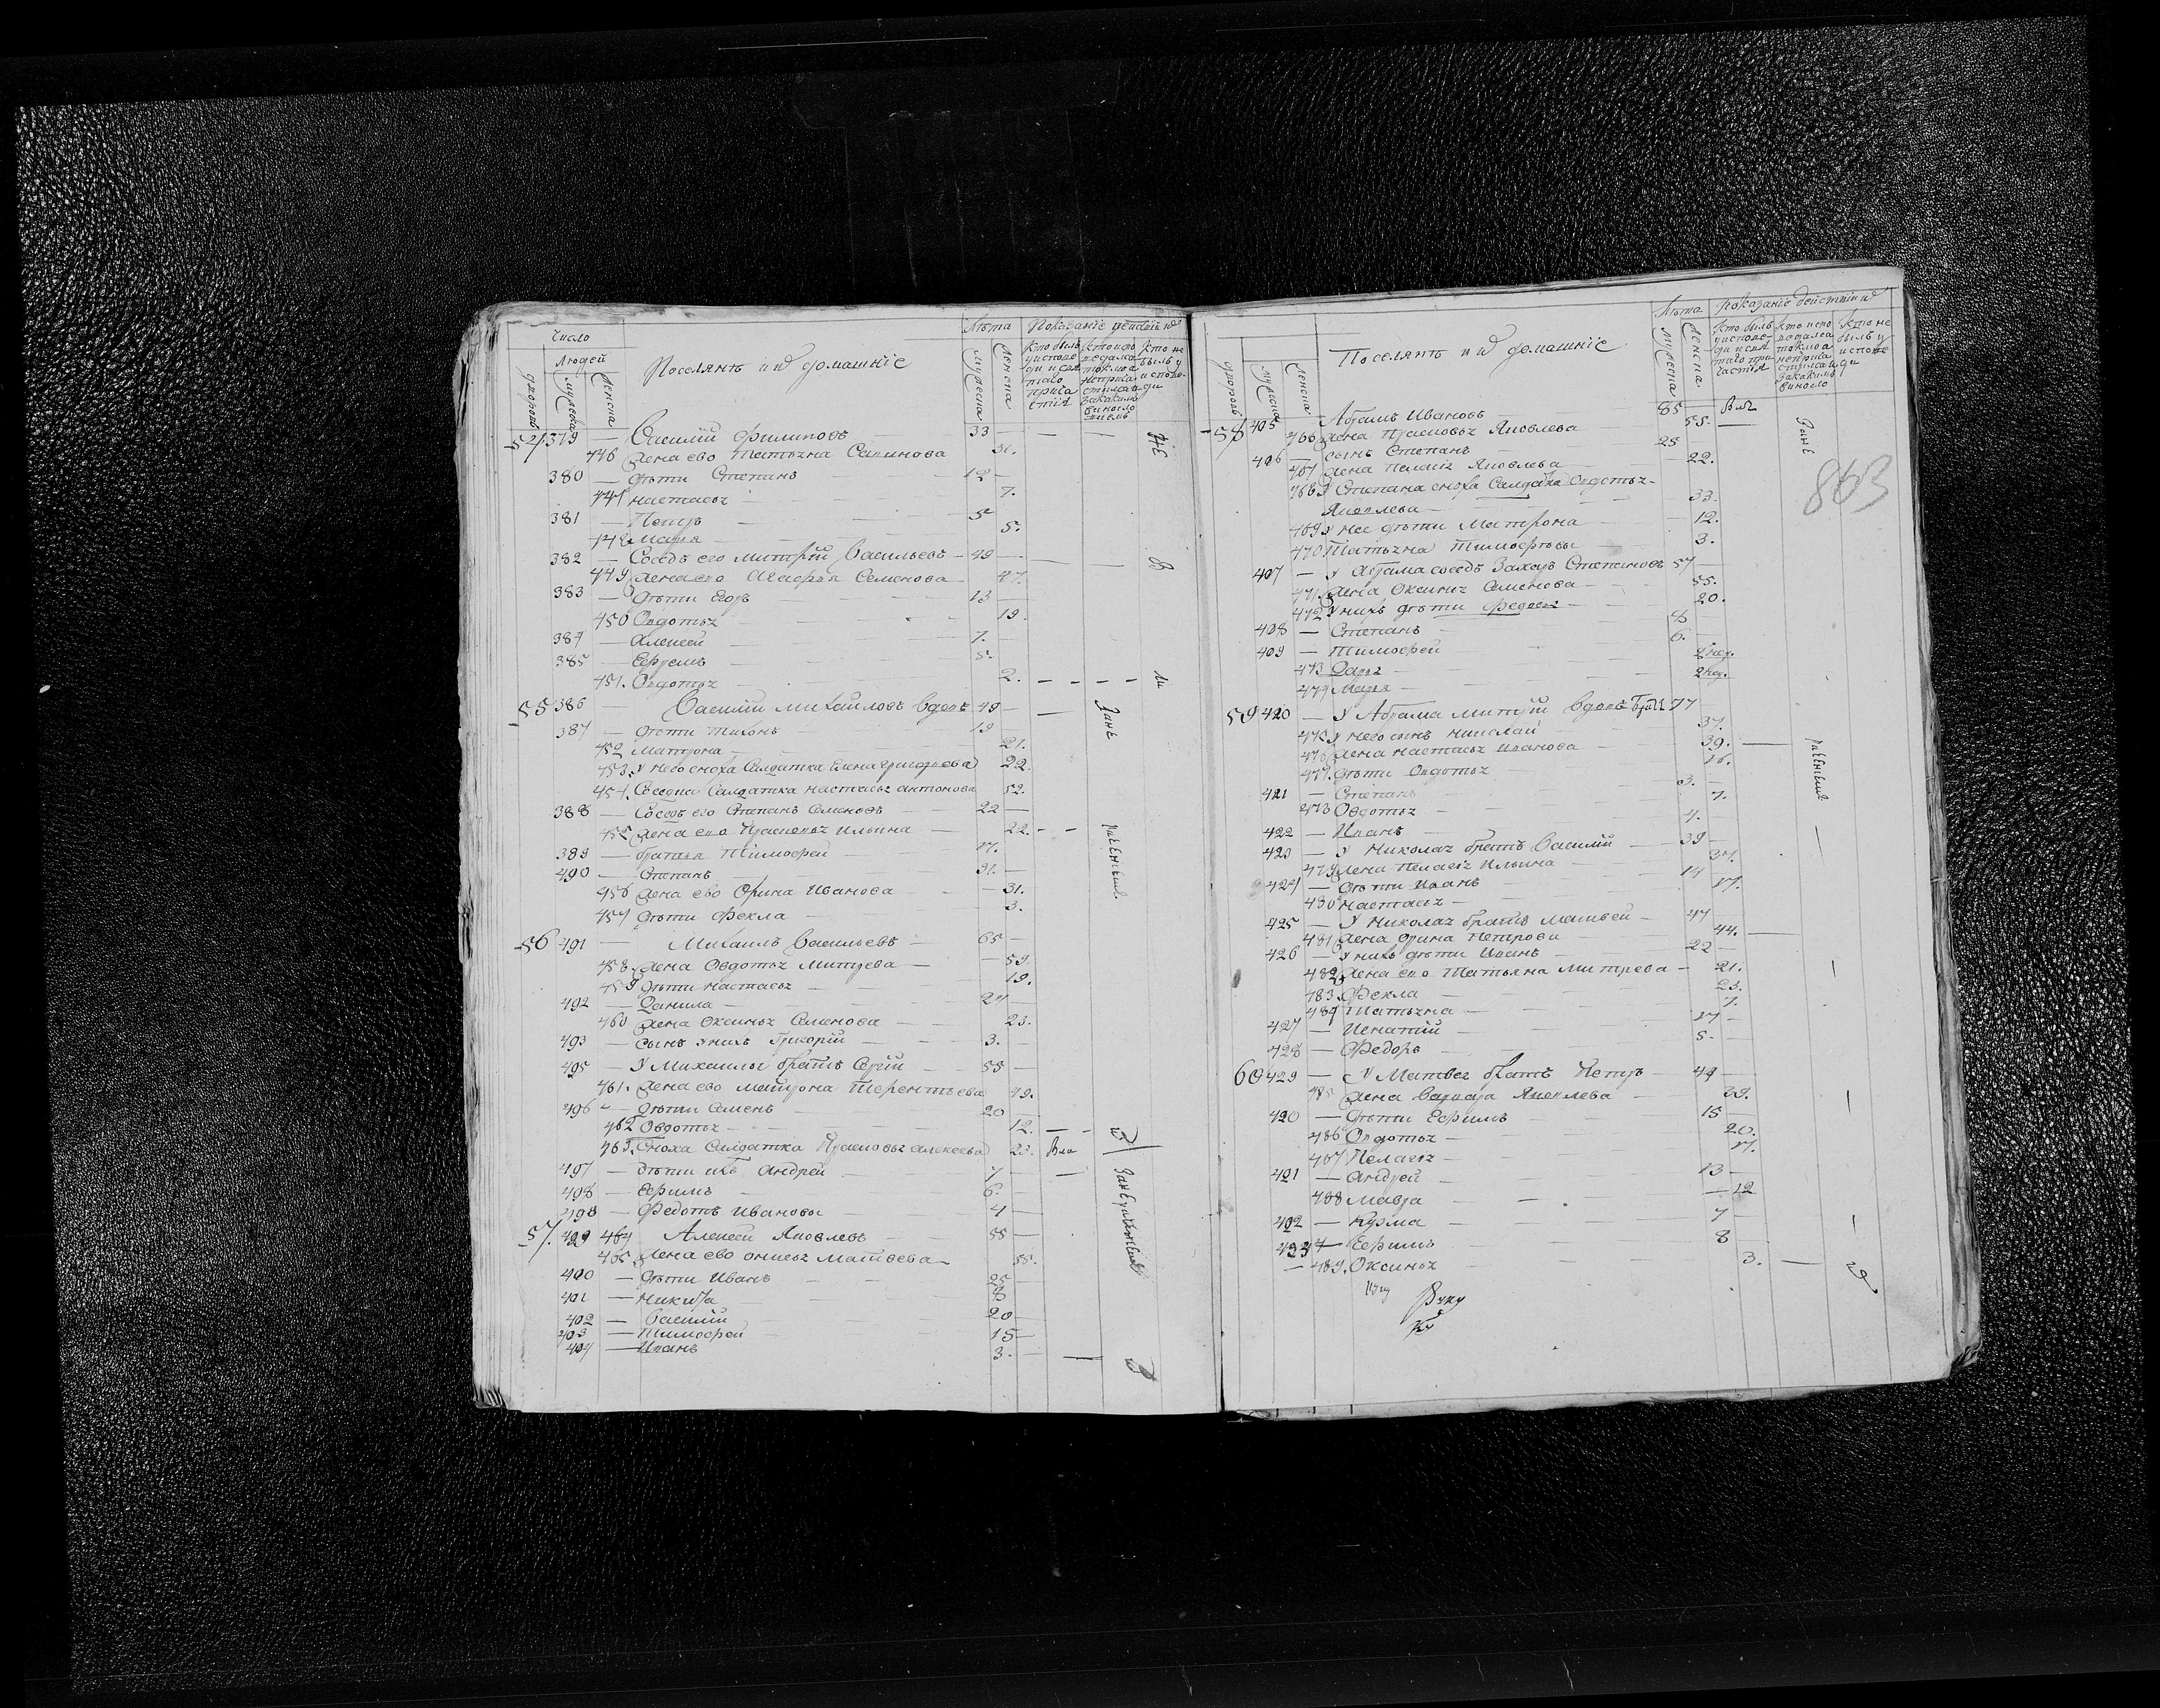 Число
Людей
дворовъ
мужеска
женска
Поселянъ и ихъ домашніе
Лѣта
мужеска
женска
Показаніе
Кто былъ у исповеди и святаго причастія
Кто не былъ у исповеди
54 379 — Василій Филиповъ — 33
446 жена ево Татьяна Савинова 31.
380 — Дѣти Степанъ — 12
447 Настасья 7.
381 — Петръ — 5
448 Марья — 5.
382 — Соседъ его Митрій Васильевъ — 49
449 жена ево Агафья Семенова 47.
383 — Дѣти Егоръ — 13
450 Овдотья 19.
384 — Алексей — 7.
385 — Ефремъ — 5.
451. Овдотья 2.
55 386 — Василій Михайловъ вдовъ 49
387 — Дѣти Тихонъ 19
452 Матрона — 21.
453. У него сноха Салдатка Елена Григорьева 22.
454. Соседка Салдатка Настасья Антонова 52.
388 — Соседъ его Степанъ Семеновъ 22
455 жена ево Прасковья Ильина — 22.
389 — братья Тимофей — 17.
490 — Степанъ — 31.
456 жена ево Орина Иванова — 31.
457 Дѣти Фекла — 3.
56 491 — Михаилъ Васильевъ — 65
458. жена Овдотья Митрева — 59
459 Дѣти Настасья 19.
492 — Данила — 24
460 жена Оксинья Семенова — 23.
493 — Сынъ у нихъ Григорій — 3.
495 — У Михаилы братъ Сергій — 55
461. жена ево Матрона Терентьева 49.
496 — Дѣти Семенъ 20
462 Овдотья — 12.
463. Сноха Салдатка Прасковья Алексеева 23. Бла
497 — Дѣти ихъ Андрей 7
498 — Ефимъ 6.
498 — Федотъ Ивановы 4
57. 499 464 Алексей Яковлевъ — 55
465 жена ево Анисья Матвеева 55.
400 — Дѣти Иванъ 25
401 — Никита 8
402 — Василій 20
403 — Тимофей 15
404 — Иванъ 3.
дворовъ
мужеска
женска
Поселянъ и ихъ домашніе
Лѣта
мужеска
женска
Показаніе действій ихъ
Кто былъ у исповеди и святаго причастія
Кто не былъ у исповеди
58 405 — Абрамъ Ивановъ — 85
466 жена Прасковья Яковлева 55.
406 — сынъ Степанъ 25
467 жена Пелагея Яковлева — 22.
468 У Степана сноха Салдатка Овдотья
Яковлева — 33.
469 У нее дѣти Матрона 12.
470 Татьяна Тимофеевы 3.
407 — У Абрама соседъ Захаръ Степановъ 57
471. жена Оксинья Семенова — 55.
472 У нихъ дѣти Федосья — 20.
408 — Степанъ 8
409 — Тимофей 6.
473 Дарья 2 нед.
474 Марья 2 нед.
863
59 420 — У Абрама Митрій вдовъ 77
475 У него сынъ Николай 37.
476 жена Настасья Иванова 39.
477. Дѣти Овдотья
421 — Степанъ 3.
478 Овдотья 7.
422 — Иванъ 4.
423 — У Николая братъ Василій — 39
479 жена Пелагея Ильина 37.
424 — Дѣти Иванъ 14
480 Настасья — 17.
425 — У Николая братъ Матвей — 47
481 жена Орина Петрова 44.
426 — У нихъ дѣти Иванъ — 22
482 жена ево Татьяна Митрева — 21.
483. Фекла 23.
484 Татьяна — 7.
427 — Игнатій — 17
428 — Федоръ 5.
60 429 — У Матвея братъ Петръ — 49
485 жена Варвара Яковлева 39.
420 — Дѣти Ефимъ — 15
486 Овдотья 20.
487 Пелагея 17.
421 — Андрей 13
488 Мавра 12
422 — Кузма 7
423 — Ефимъ 8
489. Оксинья 3.